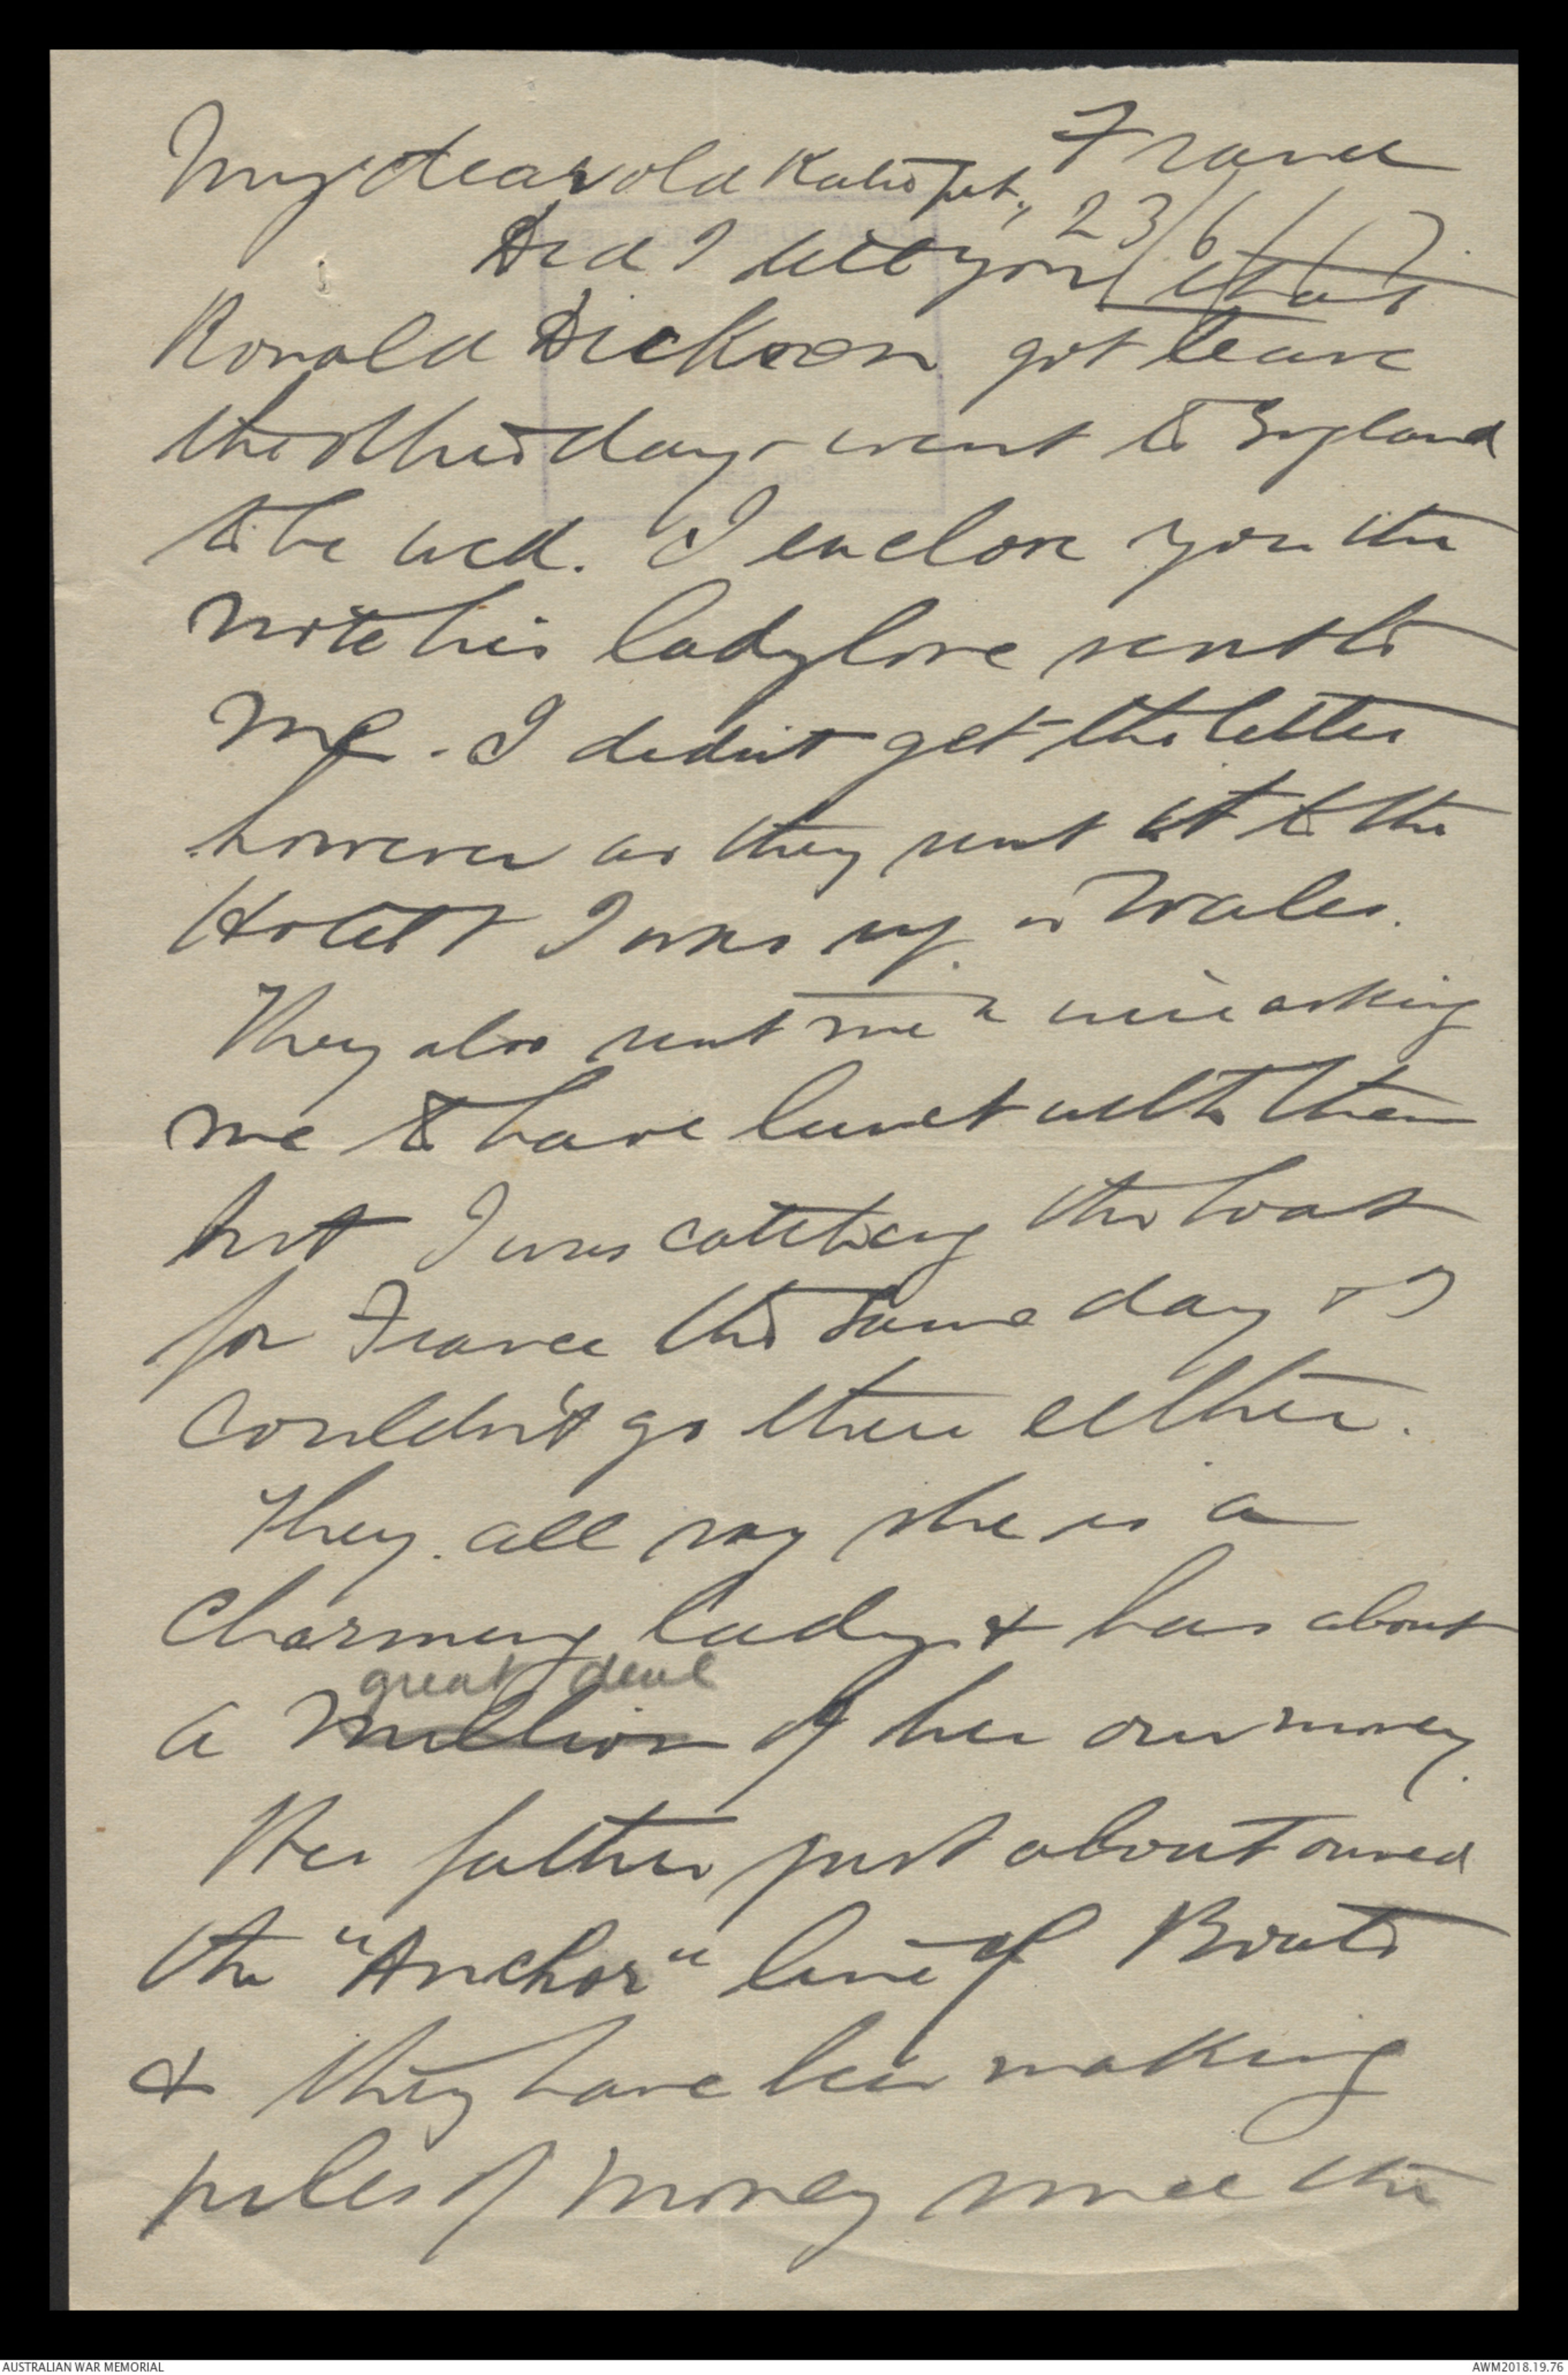 France
23/6/17.
My dear old Katie pet,
Did I tell you that
Ronald Dickson got leave
the other day & went to England
to be wed. I enclose you the
note his lady love sent to
me. I didn't get the letter
however as they sent it to the
Hotel & I was up in Wales.
They also sent me a wire asking
me to have lunch with them
but I was catching the boat
for France the same day & I
couldn't go there either.
They all say she is a
charming lady & has about
great deal
a million of her own money.
Her father just about owned
the "Anchor" line of Boats
& they have been making
piles of money since the
AUSTRALIAN WAR MEMORIAL
AWM2018.19.76